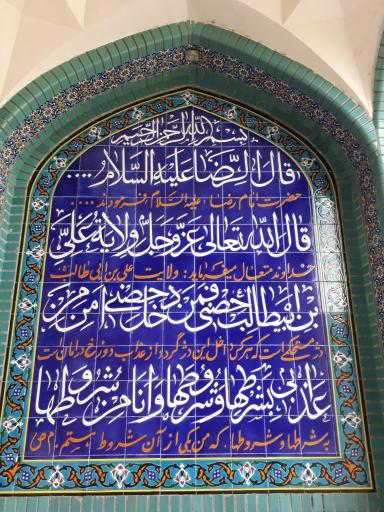 بسم الله الرحمن الرحیم
قال الرضا علیه السلام ...
حضرت امام رضا علیه السلام فرمودند ....
قال الله تعالی عز وجل ولایة علی
خداوند متعال میفرماید: ولایت علی بن ابی طالب
بن ابیطالب حصنی فمن دخل حصنی امن من
دژ مستحکمی است که هر کس داخل این دژ گردد از عذاب دوزخ در امان است
عذابی بشرطها و شروطها و انا من شروطها
بشرطها و شروطها . که من یکی از آن شروط هستم .